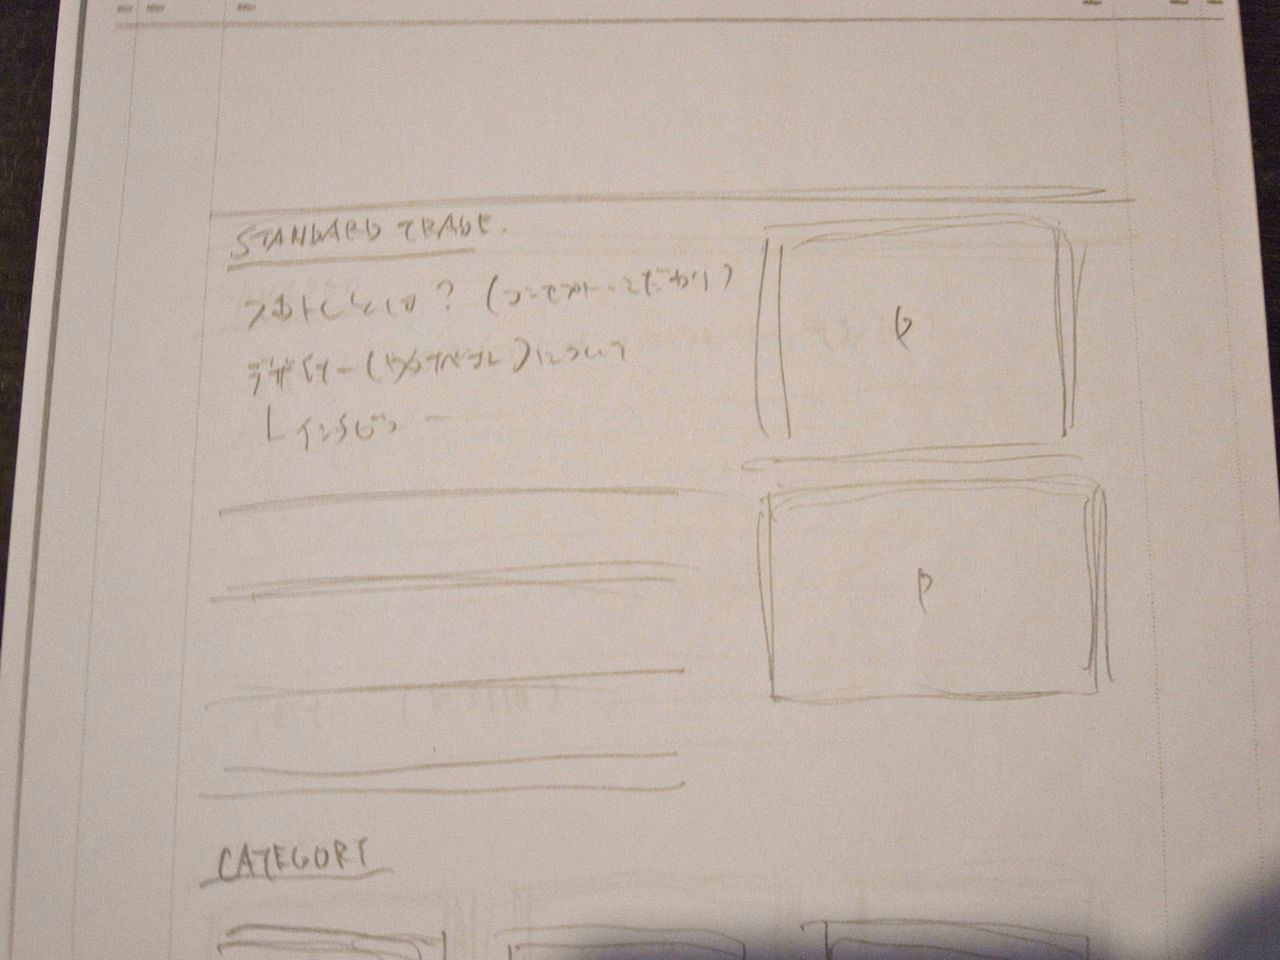 STANDARD TRADE.
スタトレとは? (コンセプト・こだわり)
デザイナー( )について
└ インタビュー
P
P
CATEGORY